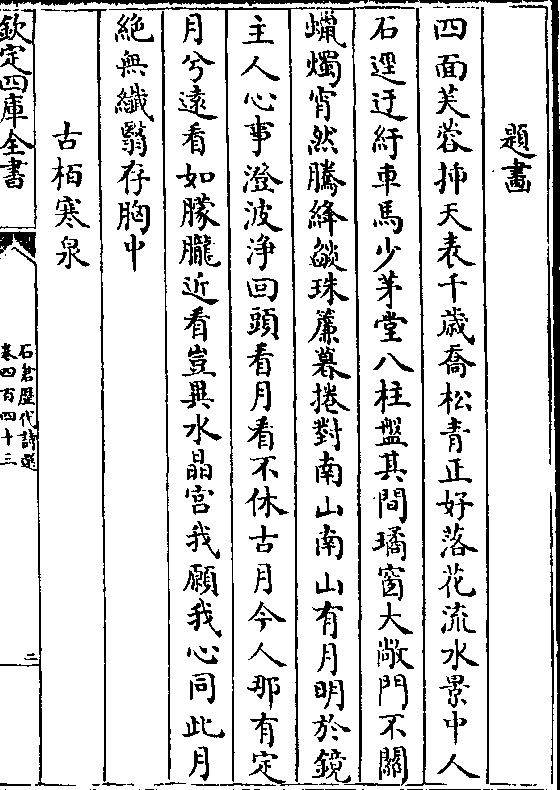 題畫
四面芙蓉揷天表千歲喬松青正好落花流水景中人
石逕迂紆車馬少茅堂八柱盤其間璚窗大敞門不關
蠟燭宵然騰絳燄珠簾暮捲對南山南山有月明於鏡
主人心事澄波浄回頭看月看不休古月今人那有定
月兮遠看如朦朧近看豈異水晶宮我願我心同此月
絶無纎翳存胸中
古栢寒泉
欽定四庫全書
石倉歷代詩選
卷四百四十三
二